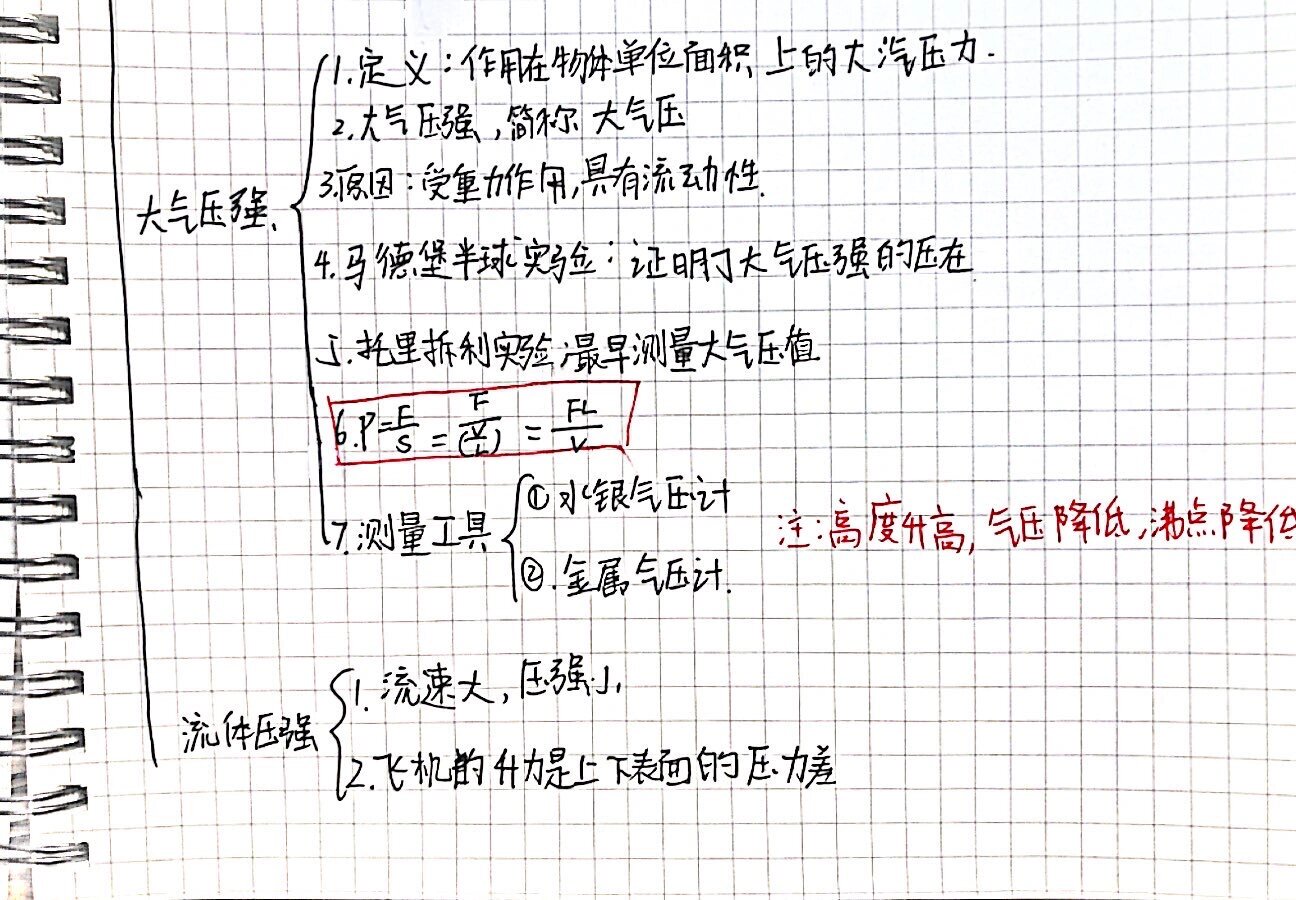 大气压强.
1.定义:作用在物体单位面积上的大汽压力.
2.大气压强,简称大气压
3.原因:受重力作用,具有流动性.
4.马德堡半球实验:证明了大气压强的压在
5.托里拆利实验:最早测量大气压值
6.P=F/S=F/(V/L)=FL/V
7.测量工具
①水银气压计
②.金属气压计.
注:高度升高,气压降低,沸点降低
流体压强
1.流速大,压强小,
2.飞机的升力是上下表面的压力差